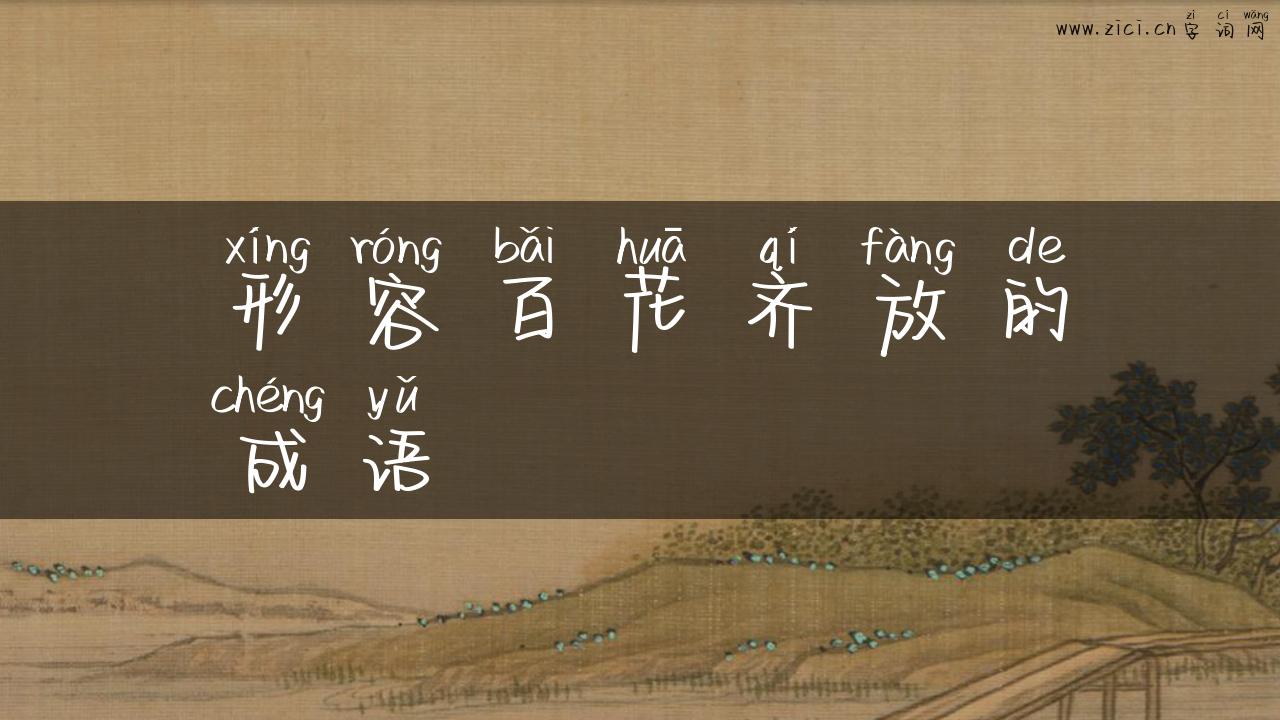 zì cí wǎng
www.zici.cn字词网
xíng róng bǎi huā qí fàng de
形容百花齐放的
chéng yǔ
成语